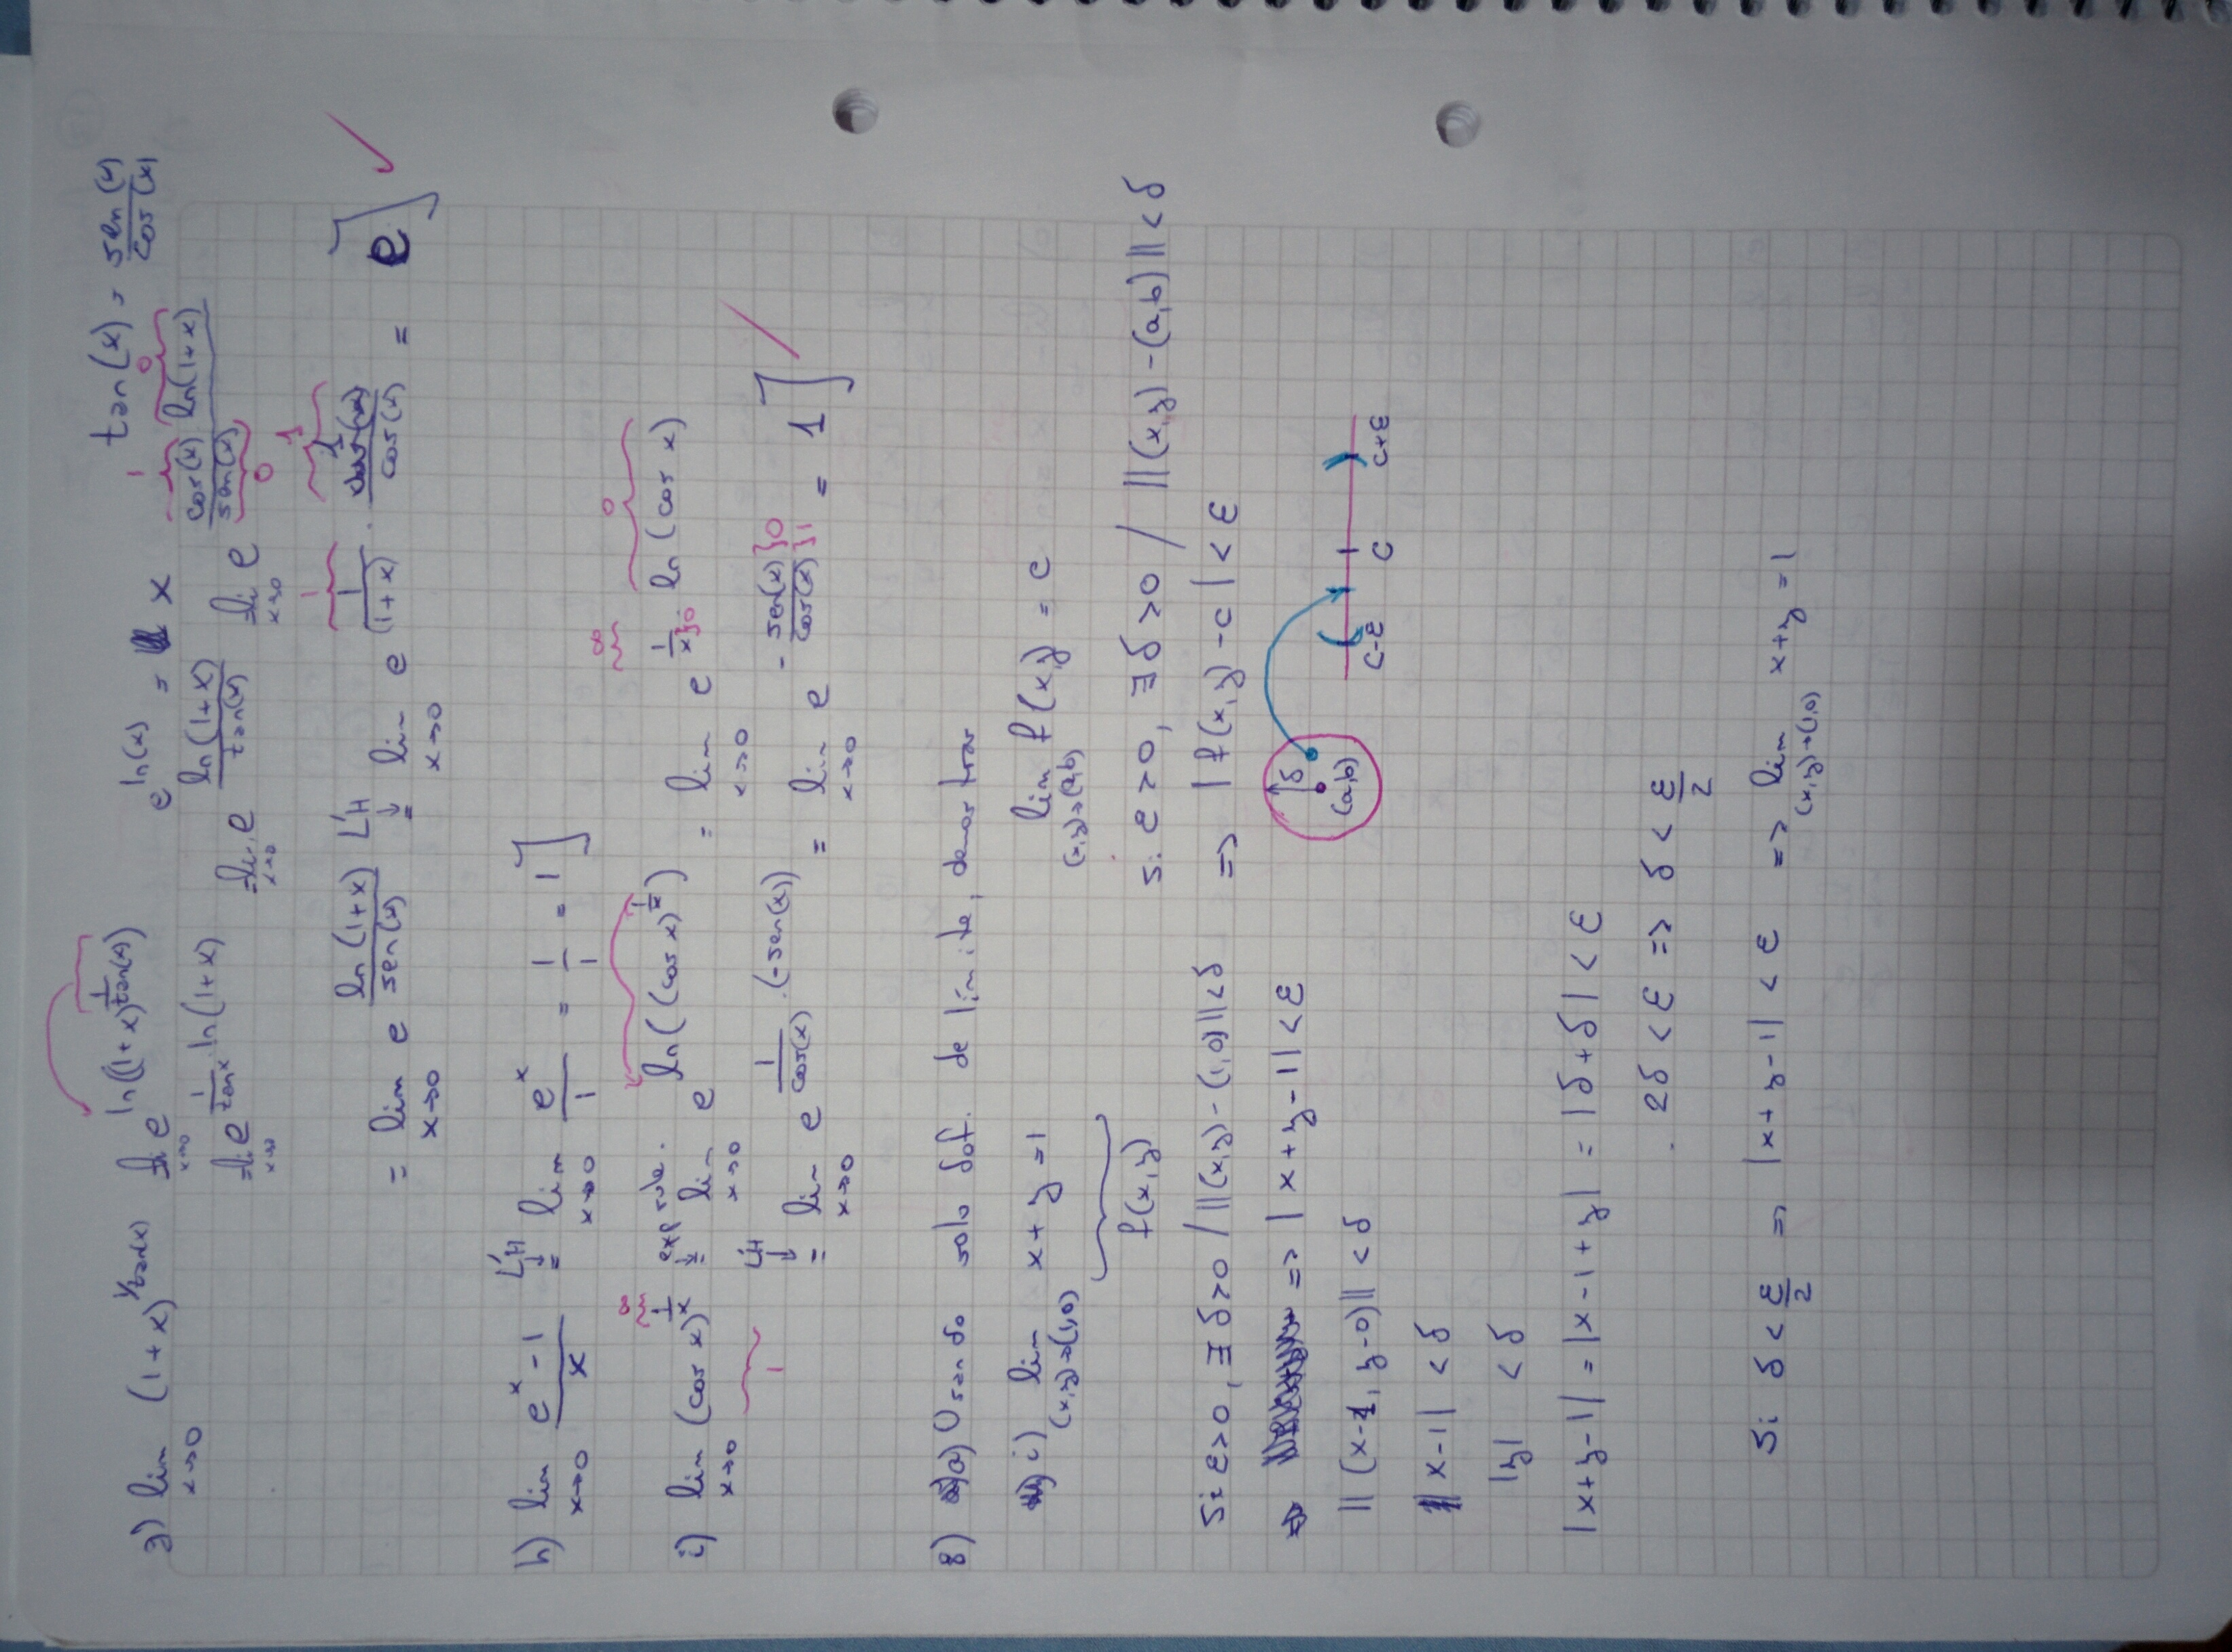 g) lim x→0 (1+x)^(1/tan(x)) = lim x→0 e^(ln((1+x)^(1/tan(x)))) e^(ln(x)) = x tan(x) = sen(x)/cos(x)
= lim x→0 e^(1/tan x · ln(1+x)) = lim x→0 e^(ln(1+x)/tan(x)) = lim x→0 e^(cos(x) ln(1+x)/sen(x)) 1 0 0
= lim x→0 e^(ln(1+x)/sen(x)) L'H ↓ = lim x→0 e^(1/(1+x) · 1/cos(x)) = e] ✓ 1 1
h) lim x→0 (e^x -1)/x L'H ↓ = lim x→0 e^x/1 = 1/1 = 1]
i) lim x→0 (cos x)^(1/x) exp rule. = lim x→0 e^(ln((cos x)^(1/x))) = lim x→0 e^(1/x · ln(cos x)) 1 ∞ ∞ 0 0
L'H ↓ = lim x→0 e^(1/cos(x) · (-sen(x))) = lim x→0 e^(- sen(x)/cos(x)) }0 }1 = 1]
8) a) Usando solo def. de límite, demostrar
i) lim (x,y)→(1,0) x+y =1 lim (x,y)→(a,b) f(x,y) = c
f(x,y) si ε>0, ∃ δ>0 / ||(x,y) -(a,b)|| < δ
Si ε>0, ∃ δ>0 / ||(x,y)-(1,0)||<δ => |f(x,y)-c| < ε
=> |x+y-1| < ε δ (a,b) c-ε c c+ε
||(x-1, y-0)|| < δ
|x-1| < δ
|y| < δ
|x+y-1| = |x-1+y| = |δ+δ| < ε
2δ < ε => δ < ε/2
Si δ < ε/2 => |x+y-1| < ε => lim (x,y)→(1,0) x+y =1